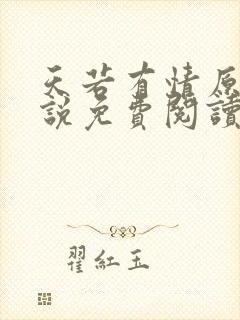 天若有情原
說免費閱讀
翟紅玉